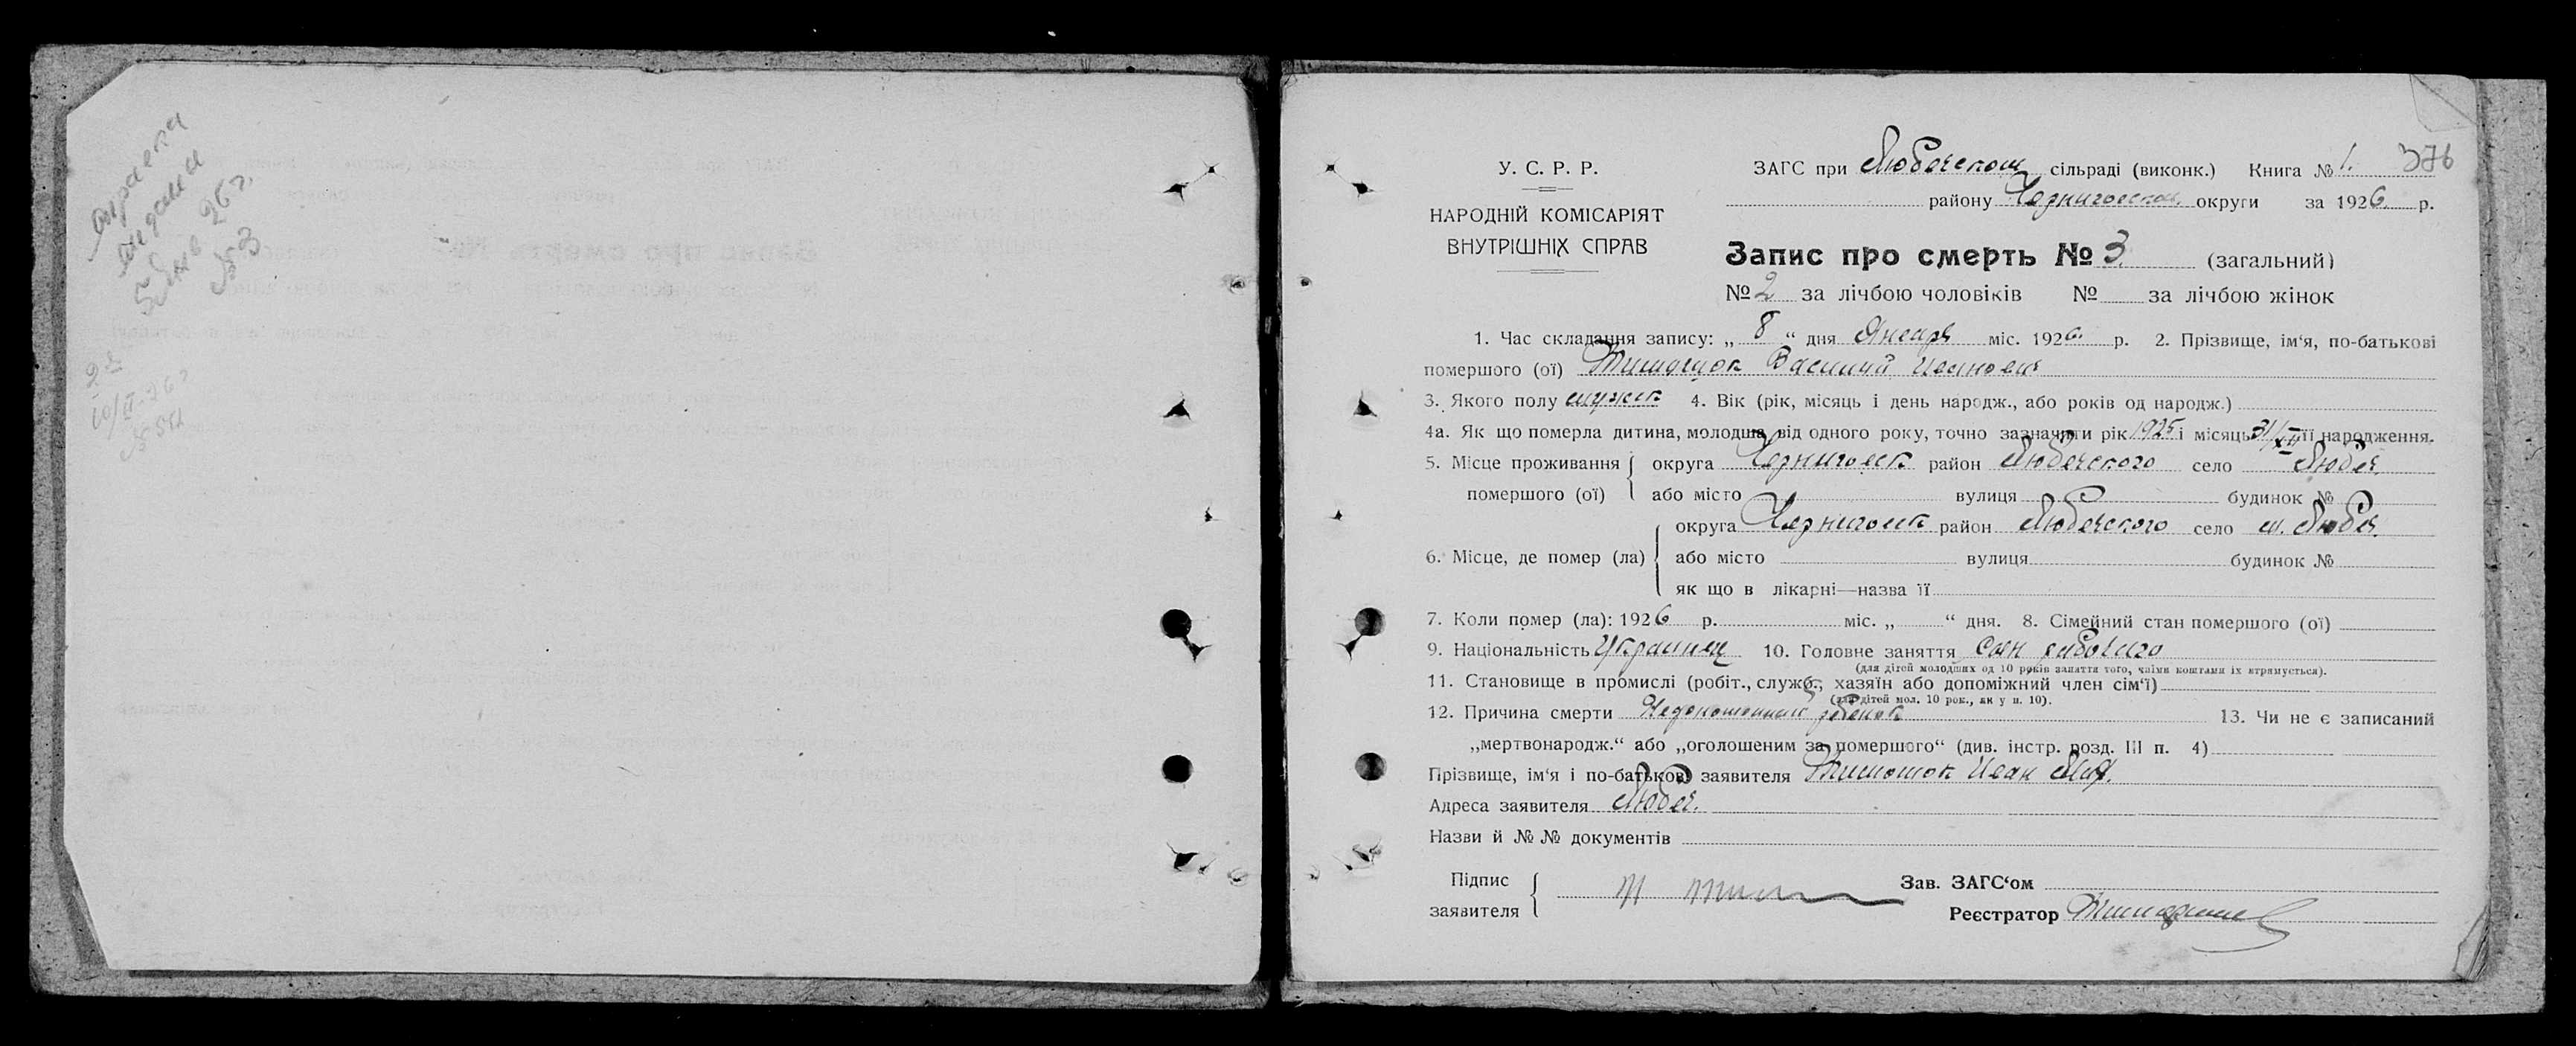 справка
выдана
26 г.
№ 3
У. С. Р. Р.
НАРОДНІЙ КОМІСАРІЯТ
ВНУТРІШНІХ СПРАВ
ЗАГС при Любечском сільраді (виконк.) Книга № 1. 376
району Черниговской округи за 1926 р.
Запис про смерть № 3 (загальний)
№ 2 за лічбою чоловіків № за лічбою жінок
1. Час складання запису: „ 8 “ дня Января міс. 1926 р. 2. Прізвище, ім‘я, по-батькові
помершого (ої) Василий Иванович
3. Якого полу мужск 4. Вік (рік, місяць і день народж., або років од народж.)
4а. Як що померла дитина, молодша від одного року, точно зазначити рік 1925 і місяць 31/XII її народження.
5. Місце проживання округа Черниговск район Любечского село Любеч
помершого (ої) або місто вулиця будинок №
округа Черниговск район Любечского село м. Любеч
6. Місце, де помер (ла) або місто вулиця будинок №
як що в лікарні—назва її
7. Коли помер (ла): 1926 р. міс. „ “ дня. 8. Сімейний стан помершого (ої)
9. Національність Украинец 10. Головне заняття Сын
(для дітей молодших од 10 років заняття того, чиїми коштами їх втримується).
11. Становище в промислі (робіт., служб., хазяїн або допоміжний член сім‘ї)
(для дітей мол. 10 рок., як у п. 10).
12. Причина смерти Недоношенный ребенок 13. Чи не є записаний
„мертвонародж.“ або „оголошеним за помершого“ (див. інстр. розд. III п. 4)
Прізвище, ім‘я і по-батькові заявителя Тимошок Иван
Адреса заявителя Любеч.
Назви й № № документів
Підпис
заявителя
Зав. ЗАГС‘ом
Реєстратор